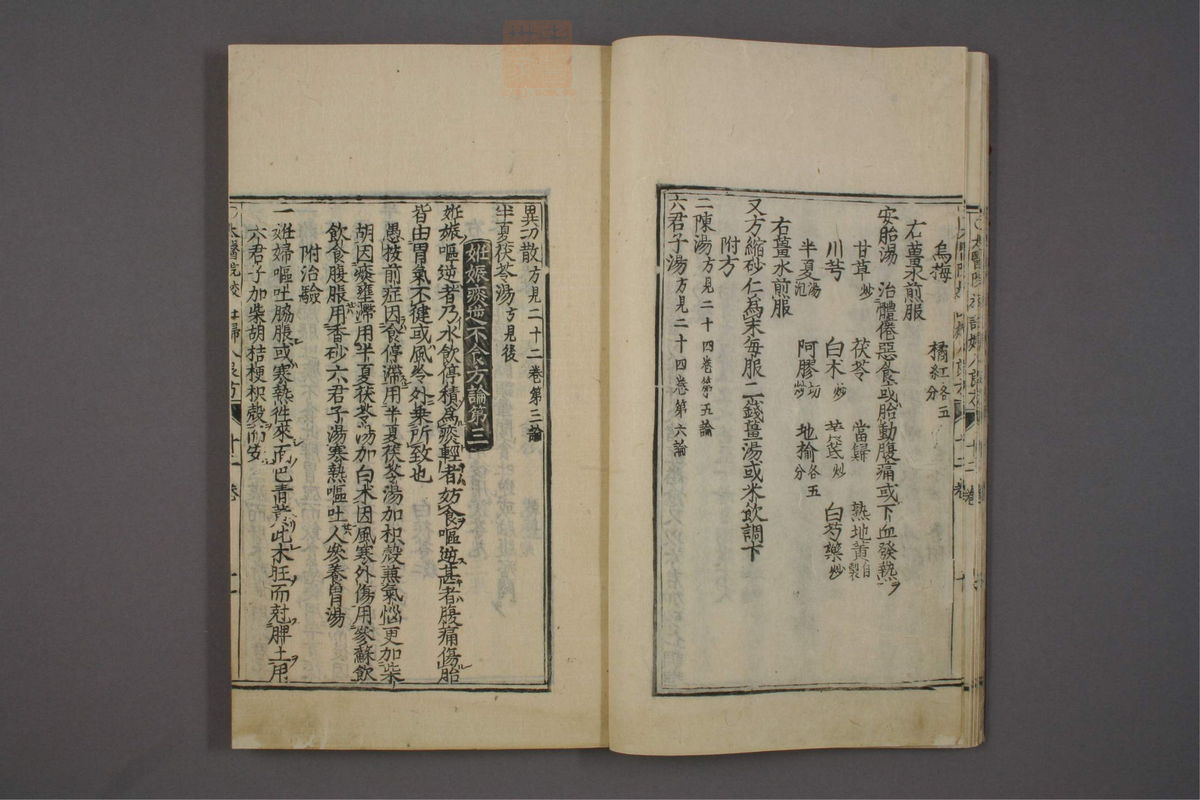 烏梅　橘紅各五分
右薑水煎服
安胎湯　治體倦惡食或胎動腹痛或下血發熱
甘草炒　茯苓　當歸　熟地黃自製
川芎　白朮炒　黃芪炒　白芍藥炒
半夏湯泡　阿膠切炒　地榆各五分
右薑水煎服
又方縮砂仁為末每服二錢薑湯或米飲調下
附方
二陳湯方見二十四卷第五論
六君子湯方見二十四卷第六論
異功散方見二十二卷第三論
半夏茯苓湯方見後
妊娠痰逆不食方論第三
妊娠嘔逆者乃水飲停積為痰輕者妨食嘔逆甚者腹痛傷胎
皆由胃氣不健或風冷外乘所致也
愚按前症因食停滯用半夏茯苓湯加枳殼兼氣惱更加柴
胡因痰壅滯用半夏茯苓加白朮因風寒外傷用參蘇飲
飲食腹脹用香砂六君子湯寒熱嘔吐人參養胃湯
附治驗
一妊婦嘔吐脇脹或寒熱往來面色青黃此木旺而尅脾土用
六君子加柴胡桔梗枳殼而安
太醫院校　婦人良方　十二卷